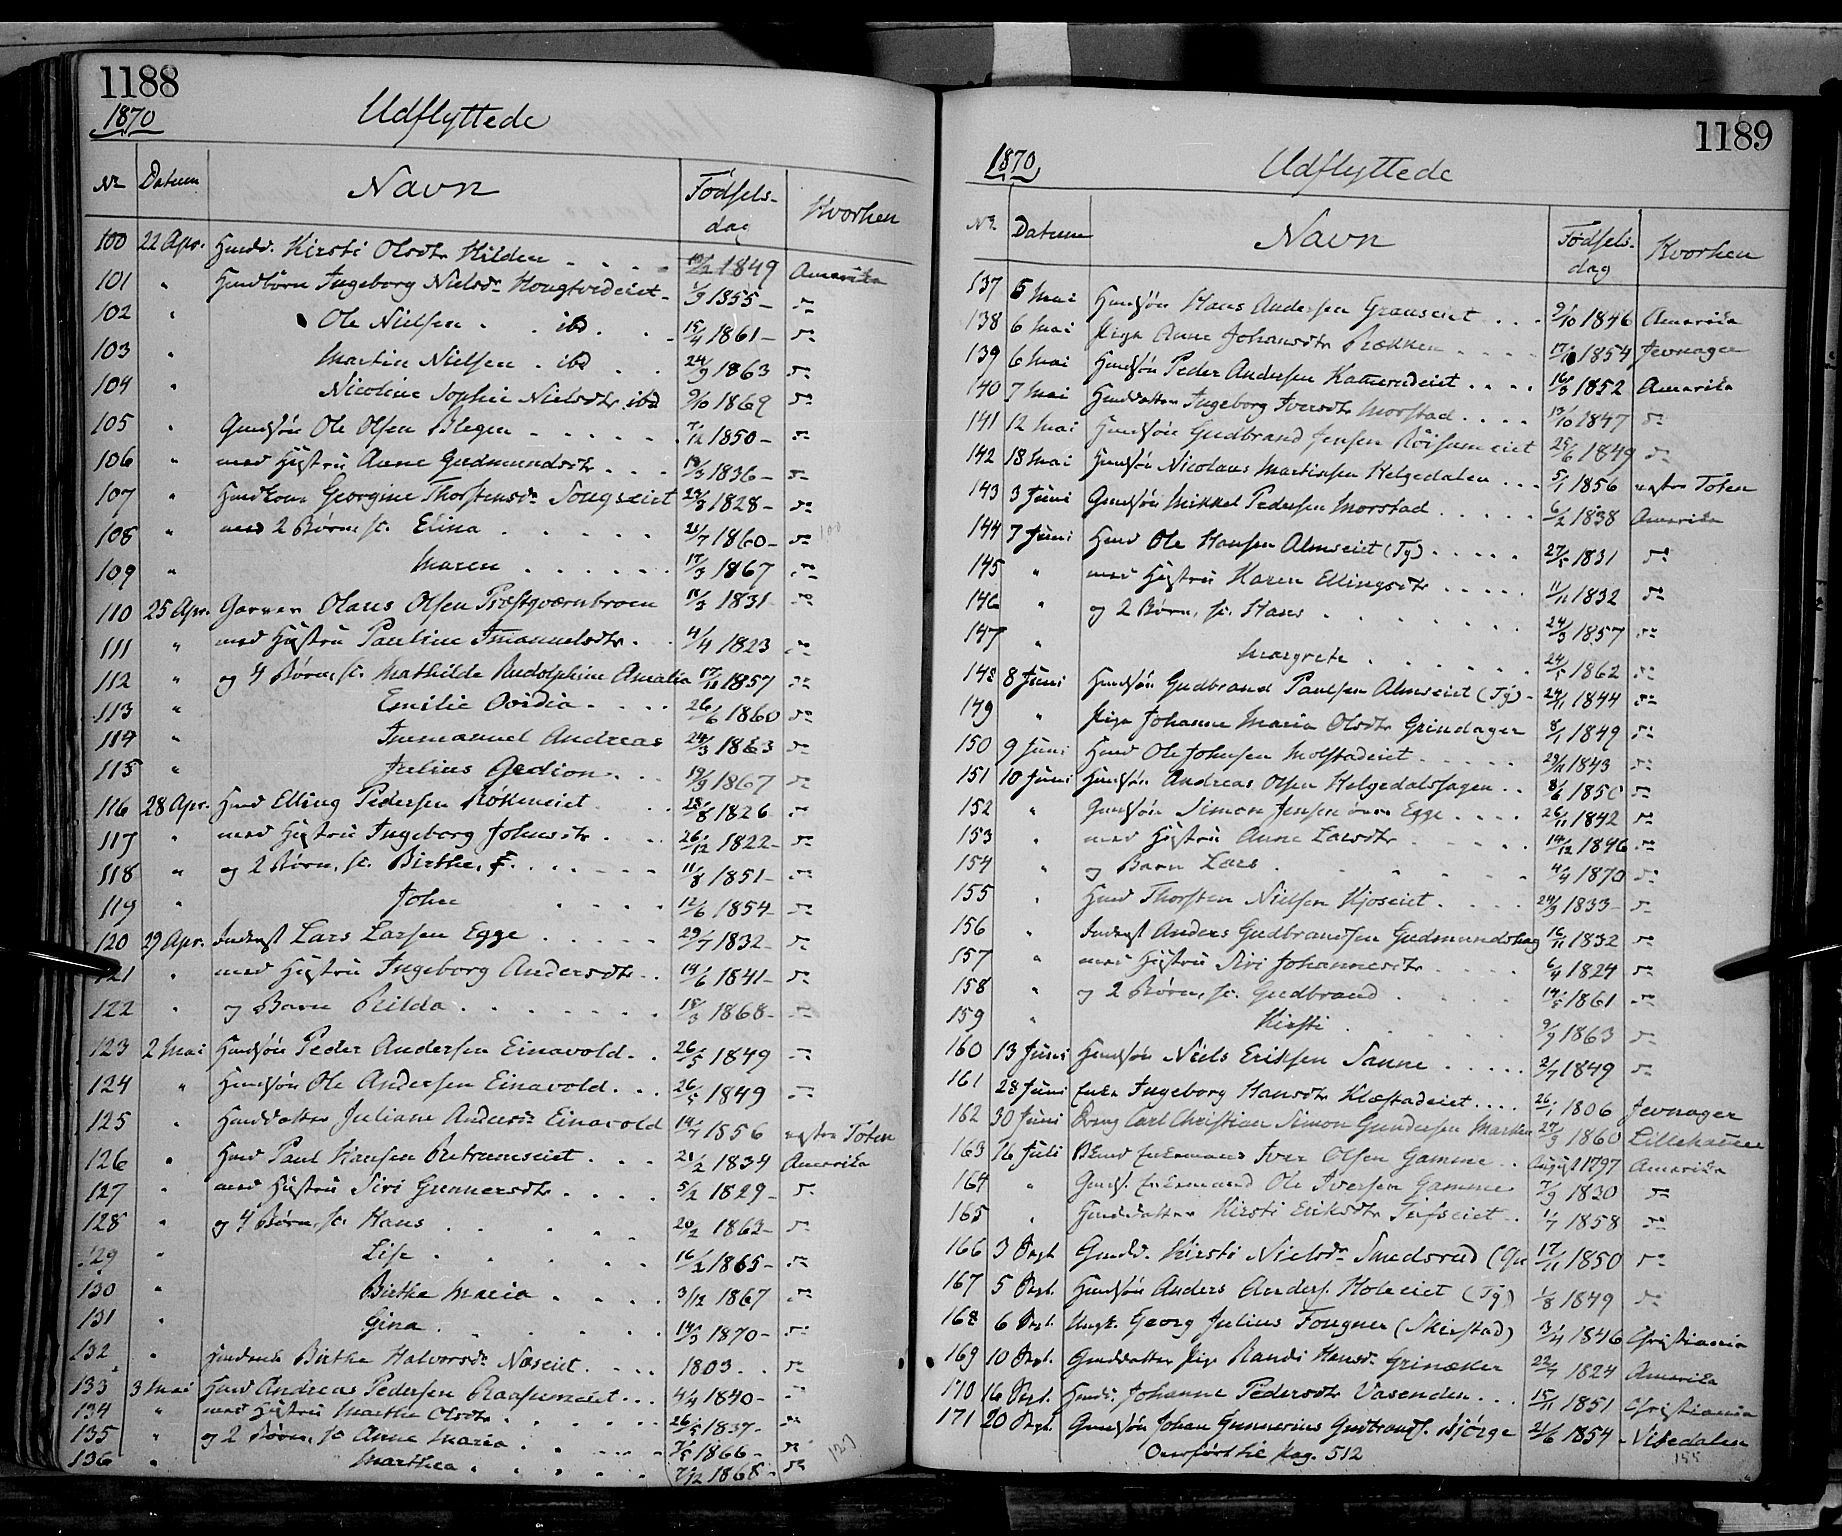 1188
1870 Udflyttede
No Datum Navn Fødsels-dag Hvorhen
100 22 Apr. Husmd. Kirsti Olsdtr Hilden 1849 Amerika
101 " Husmbørn Ingeborg Nielsdr Hougtvedeiet 1/9 1855 do
102 " Ole Nielsen ibd 15/4 1861 do
103 " Martin Nielsen ibd 24/9 1863 do
104 " Nicoline Sophie Nielsdtr ibd 9/10 1869 do
105 " Gaardsøn Ole Olsen Blegen 7/12 1850 do
106 " med Hustru Anne Gudmundsdtr 1836 do
107 " Georgine Thorstensdr Songseiet 1828 do
108 " med 2 Børn, sc. Elina 1860 do
109 " Maren 17/3 1867 do
110 25 Apr. Garver Olaus Olsen Præstqværnbroen 1831 do
111 " med Hustru Pauline Imanuelsdtr 4/4 1823 do
112 " og 4 Børn, sc. Mathilde Rudolphine Amalia 1857 do
113 " Emilie Ovidia 26/6 1860 do
114 " Immanuel Andreas 24/3 1863 do
115 " Julius Gedion 19/9 1867 do
116 28 Apr. Husmd Elling Pedersen Røkneeiet 28/8 1826 do
117 " med Hustru Ingeborg Johnsdtr 26/12 1822 do
118 " og 2 Børn, sc. Birthe, 11/8 1851 do
119 " John 12/6 1854 do
120 29 Apr. Inderst Lars Larsen Egge 29/7 1832 do
121 " med Hustru Ingeborg Andersdtr 14/6 1841 do
122 " og Barn Rilda 18/3 1868 do
123 2 Mai Husmsøn Peder Andersen Einavold 26/5 1849 do
124 " Husmsøn Ole Andersen Einavold 26/5 1849 do
125 " Husmdatter Juliane Andersdr Einavold 14/7 1856 vestre Toten
126 " Husmd Paul Hansen 1834 Amerika
127 " med Hustru Siri Gunnersdtr 5/2 1829 do
128 " og 4 Børn, sc. Hans 20/2 1863 do
129 " Lise 16/2 1865 do
130 " Birthe Maria 3/12 1867 do
131 " Gina 14/3 1870 do
132 " Birthe Halvorsdr Næseiet 1803 do
133 3 Mai Husmd Andreas Pedersen Raasumeiet 4/4 1840 do
134 " med Hustru Marthe Olsdtr 26/5 1837 do
135 " og 2 Børn, sc. Anne Maria 1866 do
136 " Marthea 7/12 1868 do
1189
1870 Udflyttede
No Datum Navn Fødsels-dag Hvorhen
137 5 Mai Husmsøn Hans Andersen Granseiet 9/10 1846 Amerika
138 6 Mai Pige Anne Johansdtr Brækken 1854 Jevnager
139 6 Mai Husmsøn Peder Andersen 16/3 1852 Amerika
140 7 Mai Husmdatter Ingeborg Iversdtr Morstad 19/10 1847 do
141 12 Mai Husmsøn Gudbrand Jensen Røisumeiet 25/6 1849 do
142 18 Mai Husmsøn Nicolaus Martinsen Helgedalen 5/1 1856 vestre Toten
143 3 Juni Gaardsøn Mikkel Pedersen Morstad 6/2 1838 Amerika
144 7 Juni Husmd Ole Hansen Almseiet (Tg) 27/5 1831 do
145 " med Hustru Karen Ellingsdtr 11/11 1832 do
146 " og 2 Børn, sc. Hans 24/3 1857 do
147 " Margrete 24/5 1862 do
148 8 Juni Husmsøn Gudbrand Paulsen Almseiet (Tg) 24/11 1844 do
149 " Pige Johanne Maria Olsdtr Grindager 8/1 1849 do
150 9 Juni Husmd Ole Johnsen Molstadeiet 1843 do
151 10 Juni Husmsøn Andreas Olsen Helgedalshagen 8/6 1850 do
152 " Gaardsøn Simon Jensen øvre Egge 26/11 1842 do
153 " med Hustru Anne Larsdtr 14/12 1846 do
154 " og Barn Lars 4/4 1870 do
155 " Husmd Thorsten Nielsen Kjoseiet 24/3 1833 do
156 " Inderst Anders Gudbrandsen Gudmundshag 16/11 1832 do
157 " med Hustru Siri Johannesdtr 6/4 1824 do
158 " og 2 Børn, sc. Gudbrand 14/5 1861 do
159 " Kirsti 9/9 1863 do
160 13 Juni Husmsøn Niels Eriksen Sanne 2/7 1849 do
161 28 Juni Enke Ingeborg Hansdtr Klæstadeiet 26/1 1806 Jevnager
162 30 Juni Dreng Carl Christian Simon Gundersen 27/9 1860 Lillehammer
163 16 Juli Enkemand Iver Olsen Gamme August 1797 Amerika
164 " Enkemand Ole Iversen Gamme 7/9 1830 do
165 " Husmdatter Kirsti Eriksdtr 1/7 1858 do
166 3 Sept Gaardd. Kirsti Nielsdr Smedsrud 17/11 1850 do
167 5 Sept. Husmsøn Anders Anders. Holeeiet (Tg) 1/8 1849 do
168 6 Sept. Ungk. Georg Julius Fougner (Skiestad) 1846 Christiania
169 10 Sept. Gaarddatter Pige Randi Hansdr Grinaker 1824 Amerika
170 16 Sept. Johanne Pedersdtr Vasenden 15/11 1851 Christiania
171 20 Sept. Gaardsøn Johan Gunnerius Gudbrands. Bjørge 21/6 1854
Overført til pag. 512
155